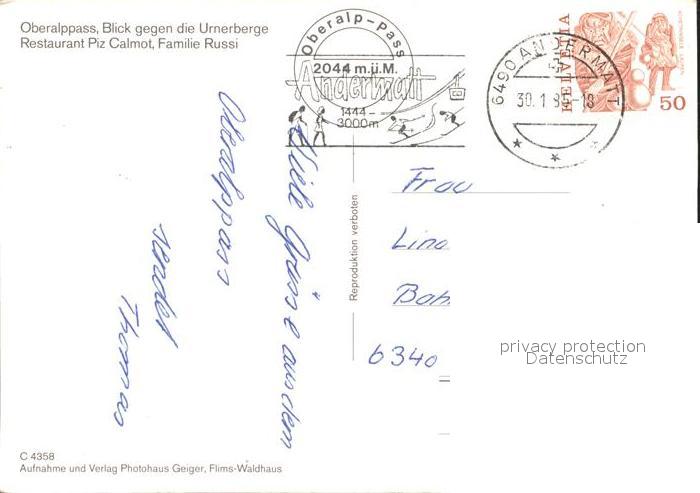 Oberalppass, Blick gegen die Urnerberge
Restaurant Piz Calmot, Familie Russi
Oberalp-Pass
2044 m.ü.M.
Andermatt
1444 -
3000m
6490 ANDERMATT
30.1.8 -18
HELVETIA
50
Viele Grüsse aus dem
Oberalppass
sendet
Thomas
Reproduktion verboten
Frau
Lina
Bah
6340
privacy protection
Datenschutz
C 4358
Aufnahme und Verlag Photohaus Geiger, Flims-Waldhaus